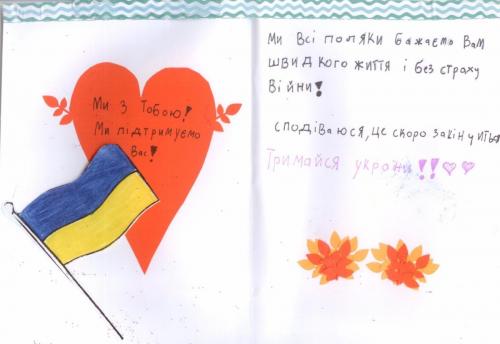 Ми З Тобою!
Ми підтримуємо
Вас!
Ми Всі поляки бажаємо Вам
швидкого життя і без страху
Війни!
сподіваюся, це скоро закінчиться
Тримайся україн!!